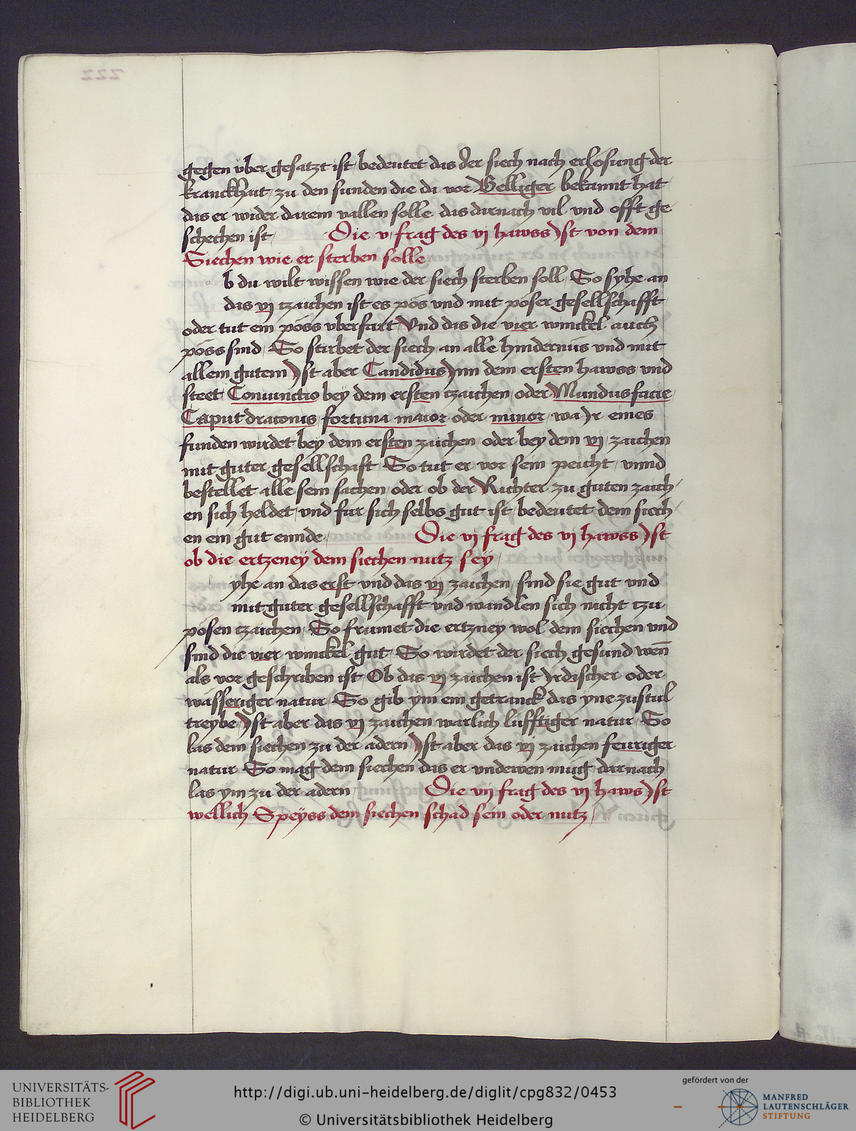 gegen vber gesatzt ist bedeutet das der siech nach erlosung der
kranckhait zu den sunden die du vor Belliger bekannt hat
das er wider darein vallen solle das darnach vil vnd offt ge
schechen ist Die v frag des vj hawss Ist von dem
Siechen wie er sterben solle
b du wilt wissen wie der siech sterben soll So syhe an
das vj tzaichen ist es pos vnd mit poser gesellschafft
oder tut ein poss vberfart Vnd das die vier winckel auch
poss sind So stirbet der siech an alle hindernus vnd mit
allem gutem Ist aber Candidus Inn dem ersten hawss vnd
steet Coniunctio bey dem ersten tzaichen oder Mundus facie
Caput draconis fortuna maior oder minor wa Ir eines
funden wirdet bey dem ersten zaichen oder bey dem vj zaichen
mit guter gesellschaft So tut er vor sein peicht vnnd
bestellet alle sein sachen oder ob der Richter zu guten zaich
en sich heldet vnd fur sich selbs gut ist bedeutet dem siech
en ein gut ennde Die vj frag des vj hawss Ist
ob die ertzeney dem siechen nutz sey
yhe an das erst vnd das vj zaichen sind sie gut vnd
mit guter gesellschafft vnd wandlen sich nicht tzu
posen tzaichen So frumet die ertzney wol dem siechen vnd
sind die vier winckel gut So wirdet der siech gesund wen
als vor geschriben ist Ob das vj zaichen ist Irdischer oder
wasseriger natur So gib ym ein getranck das yne zu stul
treybe Ist aber das vj zaichen warlich lufftiger natur So
las dem siechen zu der adern Ist aber das vj zaichen feuriger
natur So mag dem siechen das er vndewen mug darnach
las ym zu der adern Die vij frag des vj haws Ist
wellich Speyss dem siechen schad sein oder nutz
222
UNIVERSITÄTS-
BIBLIOTHEK
HEIDELBERG
http://digi.ub.uni-heidelberg.de/diglit/cpg832/0453
© Universitätsbibliothek Heidelberg
gefördert von der
MANFRED
LAUTENSCHLÄGER
STIFTUNG